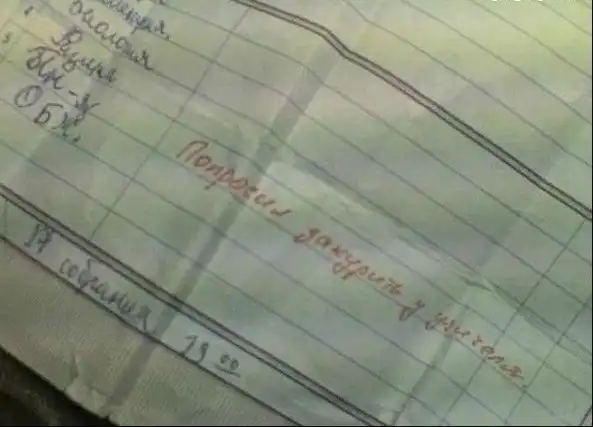 биология
Физика
Ин-яз
ОБЖ
Попросил закурить у учителя.
собрания 19 00